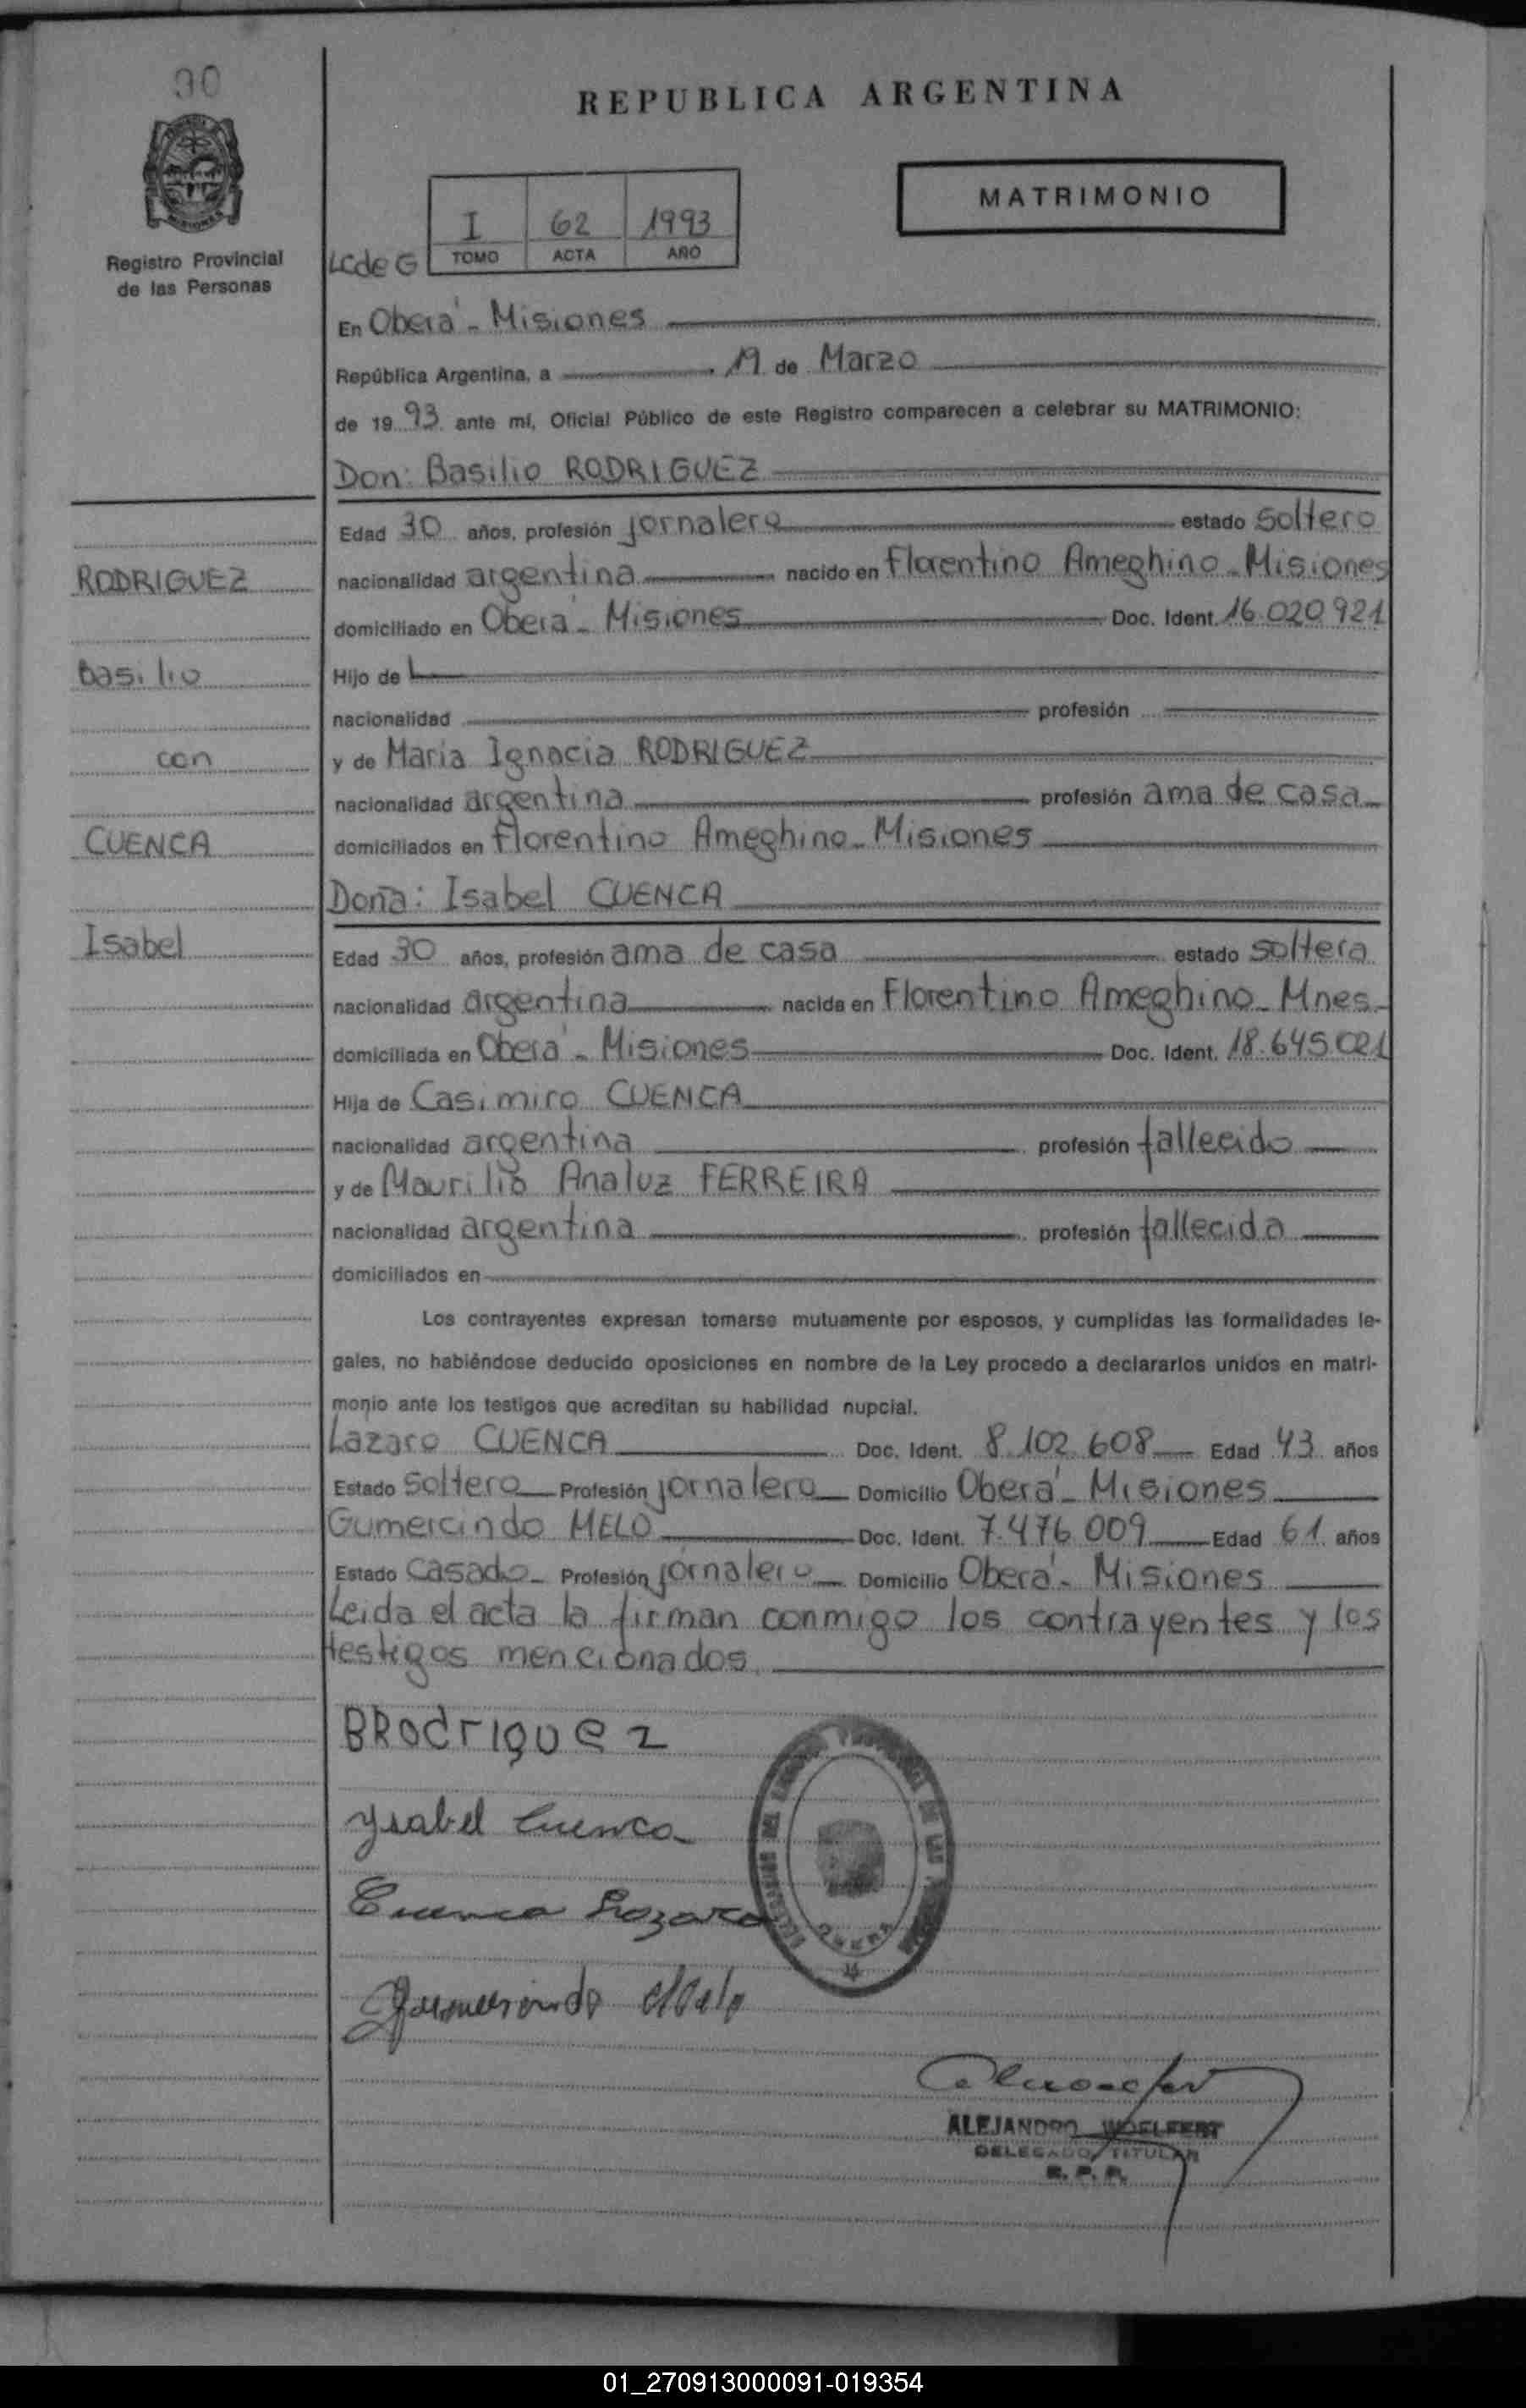 90
REPUBLICA ARGENTINA
MATRIMONIO
I 62 1993
LCdeG TOMO ACTA AÑO
Registro Provincial
de las Personas
En Oberá - Misiones
República Argentina, a 19 de Marzo
de 1993 ante mí, Oficial Público de este Registro comparecen a celebrar su MATRIMONIO:
Don: Basilio RODRIGUEZ
Edad 30 años, profesión jornalero estado soltero
RODRIGUEZ
nacionalidad argentina nacido en Florentino Ameghino - Misiones
domiciliado en Oberá - Misiones Doc. Ident. 16.020.921
Basilio
Hijo de
nacionalidad profesión
con
y de Maria Ignacia RODRIGUEZ
nacionalidad argentina profesión ama de casa
CUENCA
domiciliados en Florentino Ameghino - Misiones
Doña: Isabel CUENCA
Isabel
Edad 30 años, profesión ama de casa estado soltera
nacionalidad argentina nacida en Florentino Ameghino - Mnes
domiciliada en Oberá - Misiones Doc. Ident. 18.645.021
Hija de Casimiro CUENCA
nacionalidad argentina profesión fallecido
y de Maurilio Analuz FERREIRA
nacionalidad argentina profesión fallecida
domiciliados en
Los contrayentes expresan tomarse mutuamente por esposos, y cumplidas las formalidades le-
gales, no habiéndose deducido oposiciones en nombre de la Ley procedo a declararlos unidos en matri-
monio ante los testigos que acreditan su habilidad nupcial.
Lazaro CUENCA Doc. Ident. 8.102.608 Edad 43 años
Estado soltero Profesión jornalero Domicilio Oberá - Misiones
Gumercindo MELO Doc. Ident. 7.476.009 Edad 61 años
Estado casado Profesión jornalero Domicilio Oberá - Misiones
Leida el acta la firman conmigo los contrayentes y los
testigos mencionados.
BRodriguez
Ysabel Cuenca
Cuenca Lazaro
Gumercindo Melo
ALEJANDRO WOELFERT
DELEGADO TITULAR
R. P. P.
01_270913000091-019354